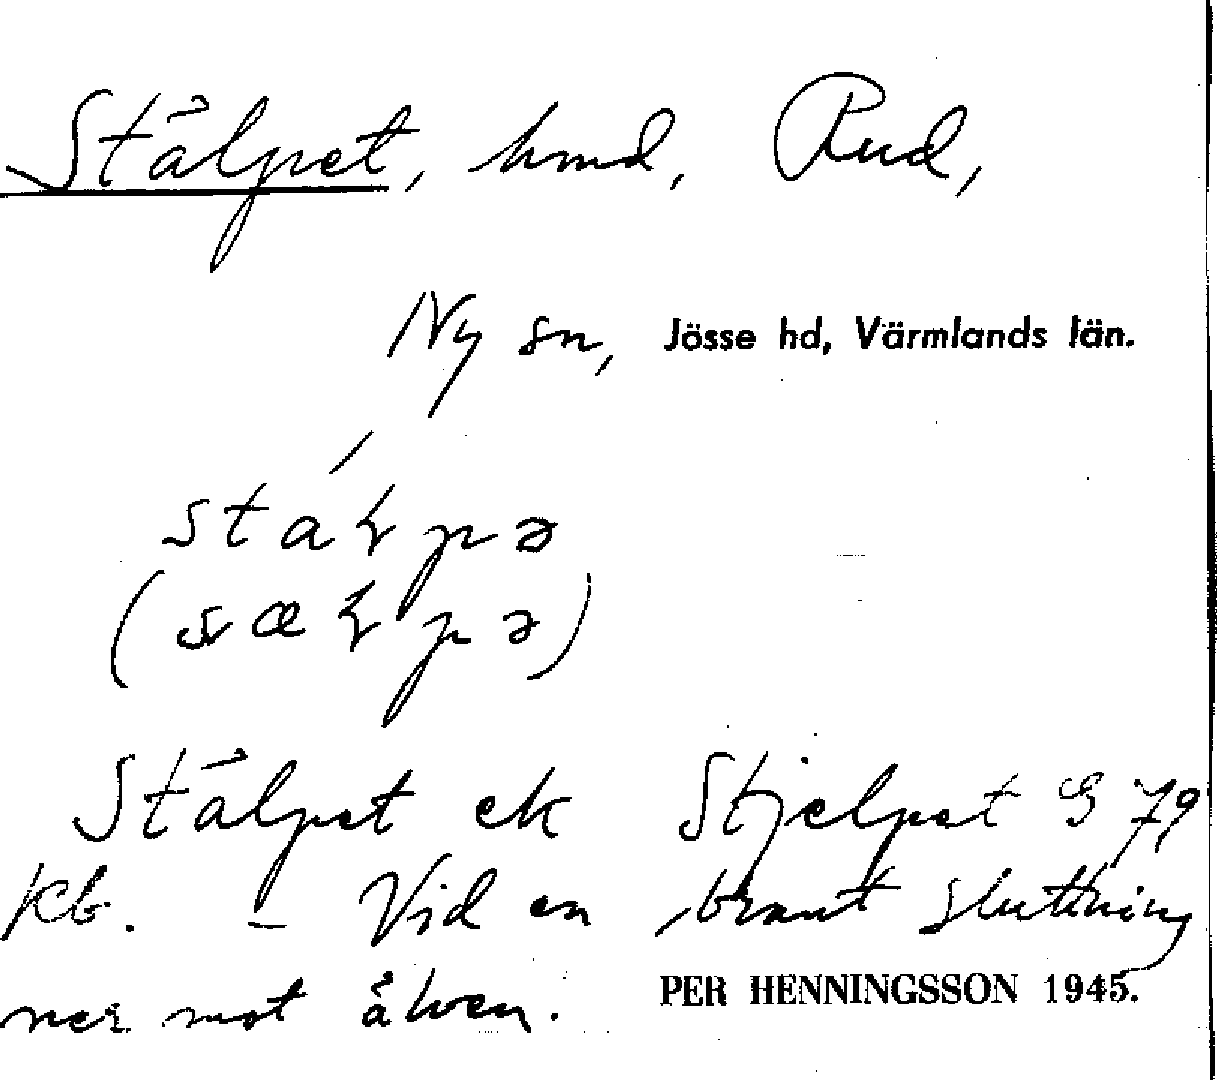 Stålpet, hmd, Rud,
Ny sn, Jösse hd, Värmlands län.
stáɫpə
(sæɫpə)
Stålpet ek Stjelpet G 79
kb. – Vid en brant sluttning
ner mot älven. PER HENNINGSSON 1945.